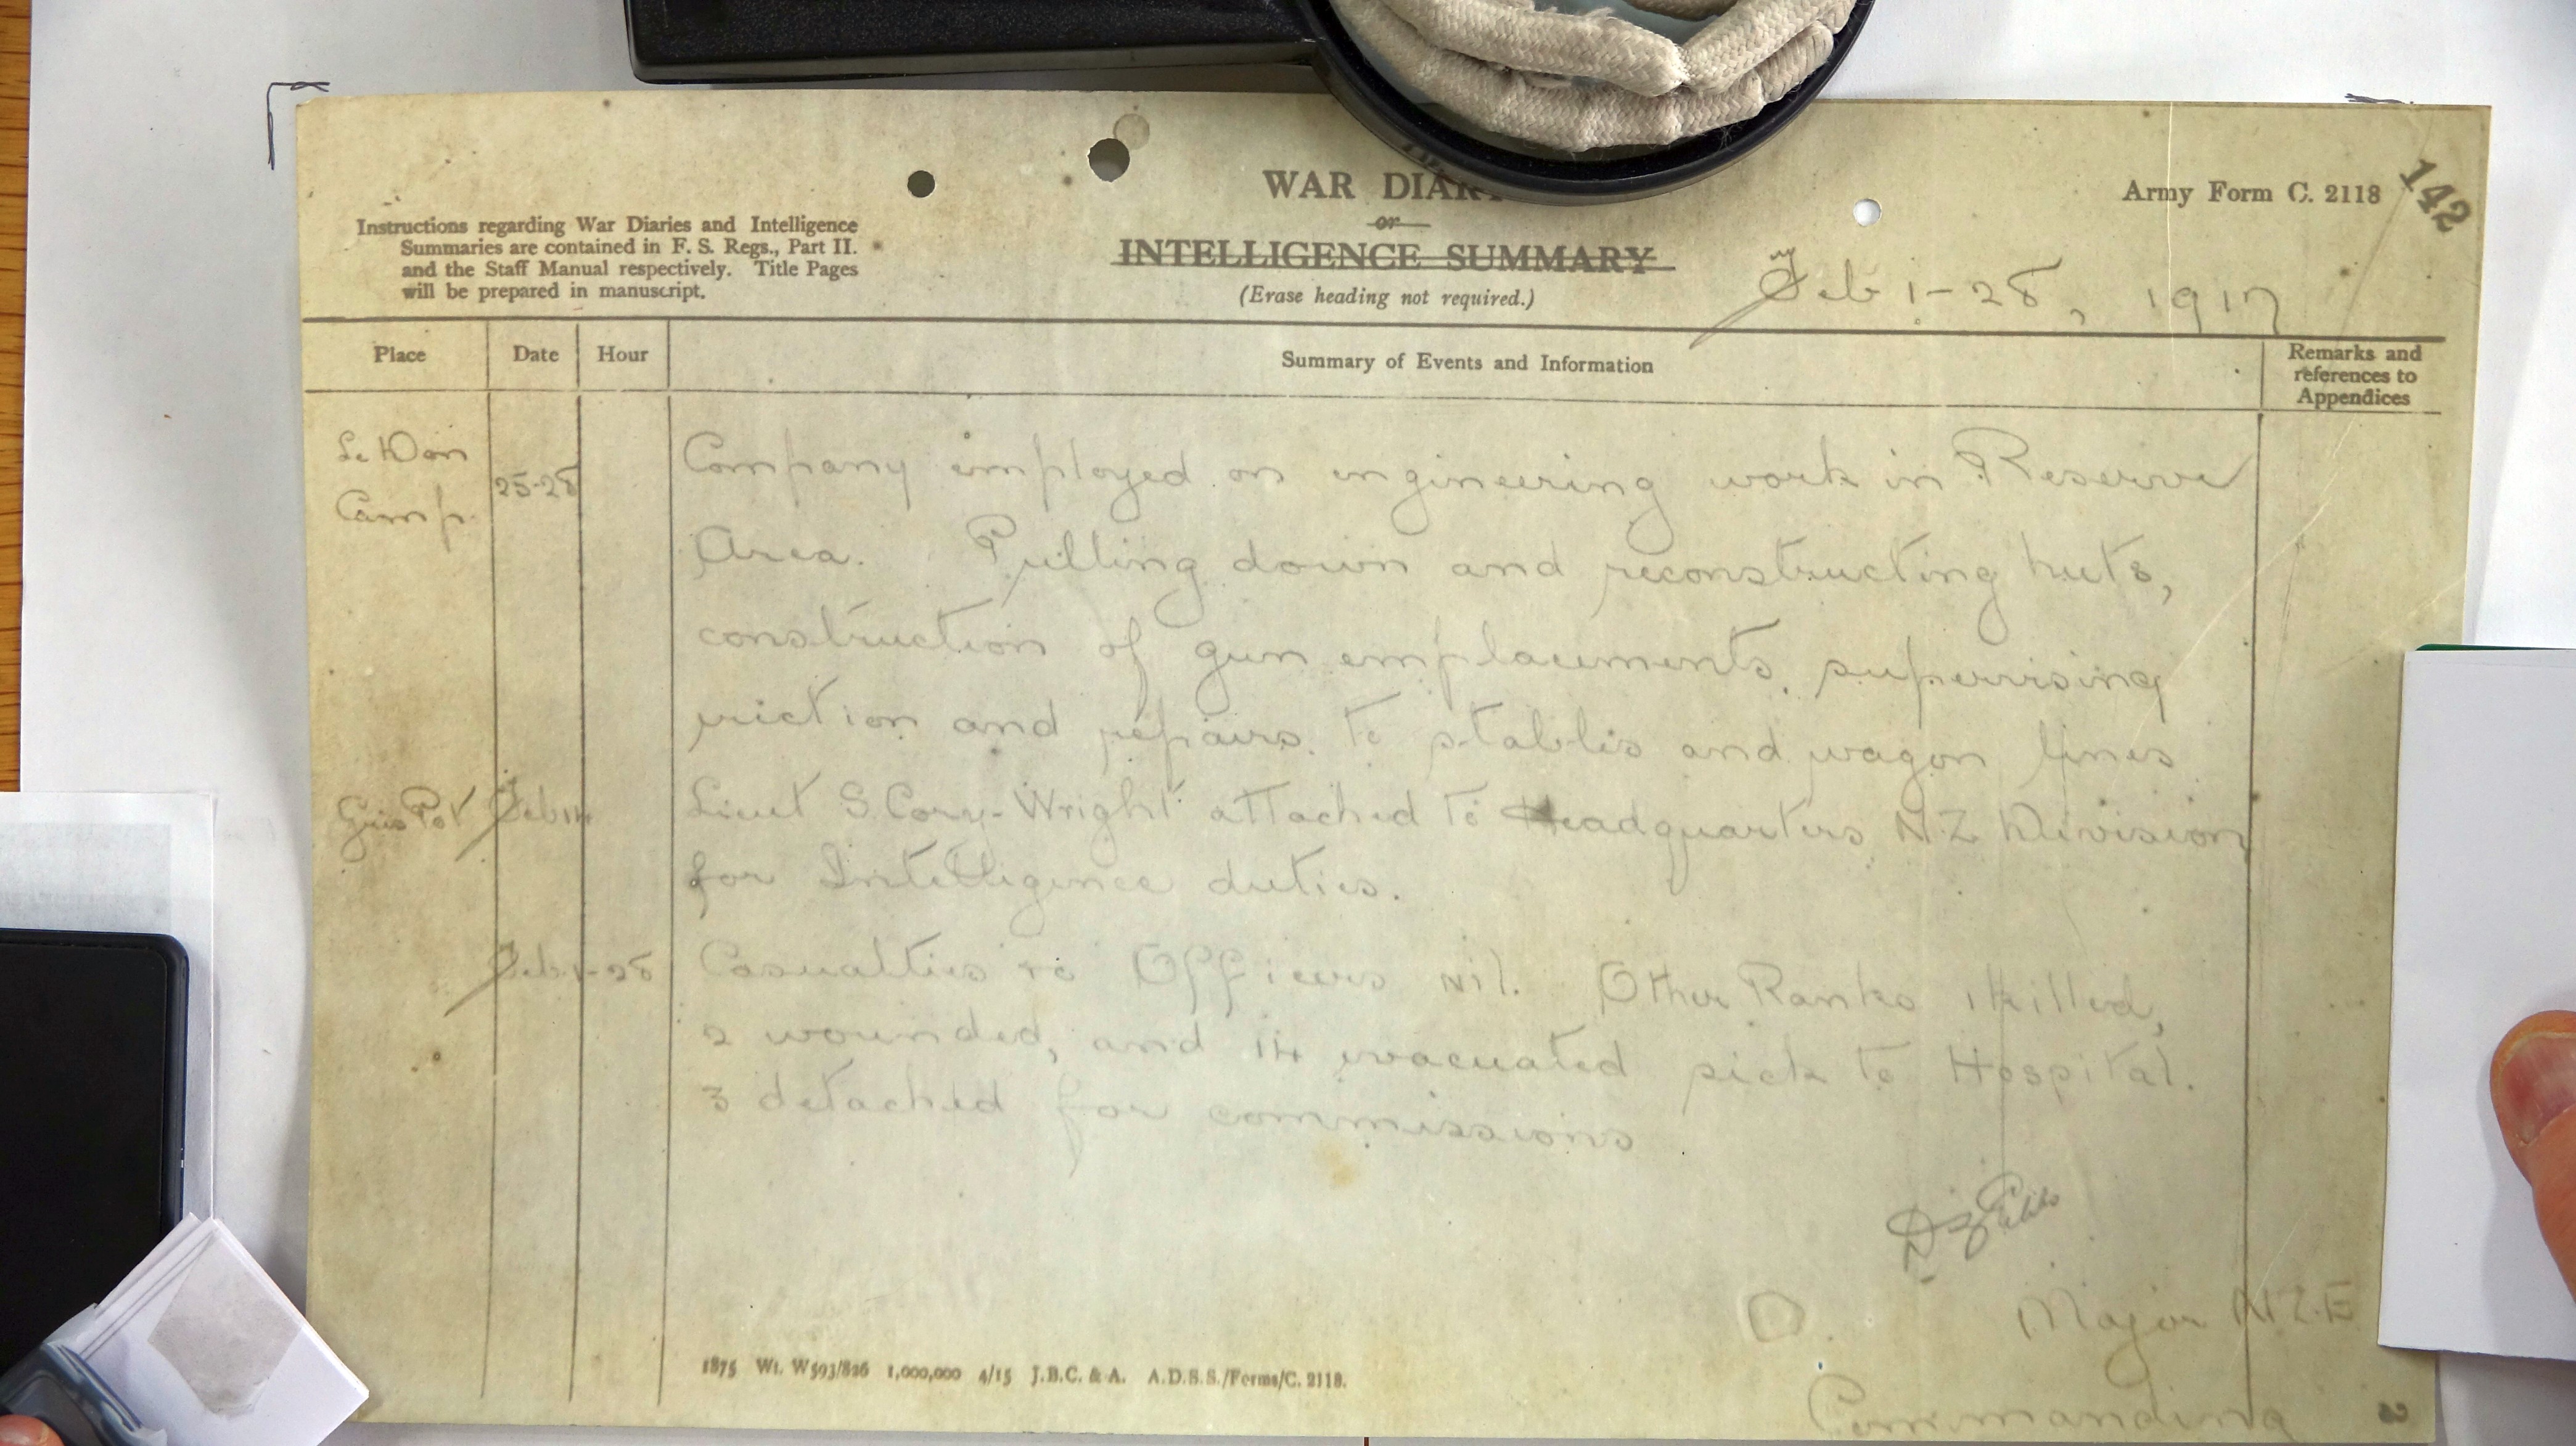 WAR DIARY
or
INTELLIGENCE SUMMARY
(Erase heading not required.)
Army Form C. 2118
142
Instructions regarding War Diaries and Intelligence
Summaries are contained in F. S. Regs., Part II.
and the Staff Manual respectively. Title Pages
will be prepared in manuscript.
Feb 1-28, 1917
Place Date Hour Summary of Events and Information Remarks and
references to
Appendices
Le Don
Camp 25-28 Company employed on engineering work in Reserve
Area. Pulling down and reconstructing huts,
construction of gun emplacements, supervising
erection and repairs to stables and wagon lines
Gris Pot Feb 14 Lieut S. Cory-Wright attached to Headquarters N.Z Division
for Intelligence duties.
Feb 1-28 Casualties re Officers nil. Other Ranks 1 killed,
2 wounded, and 14 evacuated sick to Hospital.
3 detached for commissions
Major N.Z.E
Commanding
1875 Wt. W593/826 1,000,000 4/15 J.B.C. & A. A.D.S.S./Forms/C. 2118.